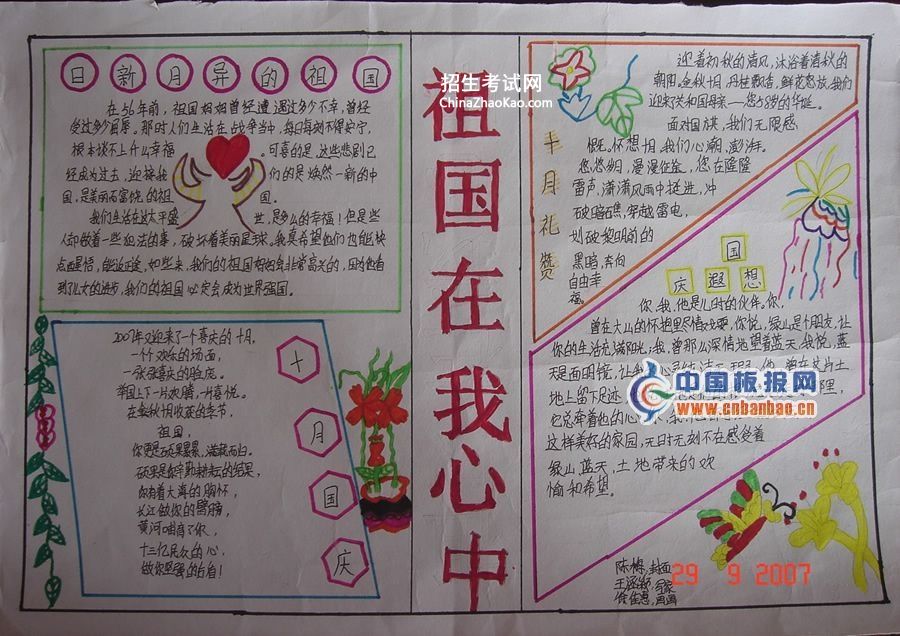 日新月异的祖国
在56年前，祖国妈妈曾经遭遇过多少不幸，曾经
受过多少屈辱。那时人们生活在战争当中，每日每刻不得安宁，
根本谈不上什么幸福。可喜的是，这些悲剧已
经成为过去，迎接我们的是焕然一新的中
国，是美丽而富饶的祖国。
我们生活在这太平盛世，是多么的幸福！但是些
人却做着一些犯法的事，破坏着美丽星球，我真希望他们也能快
点醒悟，能返正途，如些来，我们的祖国妈妈会非常高兴的，因为他看
到了儿女的进步，我们的祖国必定会成为世界强国。
十月国庆
2007年又迎来了一个喜庆的十月，
一个个欢乐的场面，
一张张喜庆的脸庞。
举国上下一片欢腾，一片喜悦。
在金秋十月收获的季节，
祖国，
你更是硕果累累，满载而归。
硕果是你辛勤耕耘的结果，
你有着大海的胸怀，
长江做你的臂膀，
黄河哺育了你，
十三亿民众的心，
做你坚强的后盾！
祖国在我心中
招生考试网
ChinaZhaoKao.com
十月礼赞
迎着初秋的清风，沐浴着清秋的
朝阳，金秋十月，丹桂飘香，鲜花怒放，我们
迎来了共和国母亲——您58岁的华诞。
面对国旗，我们无限感
慨，怀想十月，我们心潮澎湃。
您，悠悠岁月，漫漫征途，您在隆隆
雷声，潇潇风雨中挺进，冲
破暗礁，穿越雷电，
划破黎明前的
黑暗，奔向
自由幸
福。
国庆遐想
你，我，他是儿时的伙伴。你，
曾在大山的怀抱里尽情玩耍，你说，绿山是个朋友，让
你的生活充满阳光；我，曾那么深情地望着蓝天，我说，蓝
天是面明镜，让我
地上留下足迹
这样美好的家园，无时无刻不在感受着
绿山，蓝天，土地带来的欢
愉和希望。
中国板报网
www.cnbanbao.cn
29 9 2007